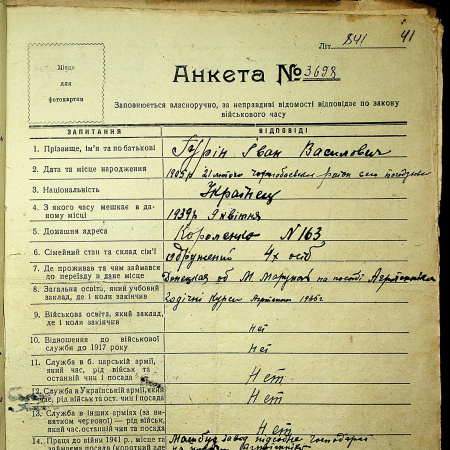 Літ. 841 41
Місце
для
фотокартки
Анкета № 3698
Заповнюється власноручно, за неправдиві відомості відповідає по закону
військового часу
ЗАПИТАННЯ ВІДПОВІДІ
1. Прізвище, ім'я та по батькові Гурін Іван Василович
2. Дата та місце народження 1905р 21 лютого Чорнобаєвский район село
3. Національність Українец
4. З якого часу мешкає в да-
ному місці 1939р 9 квітня
5. Домашня адреса Короленко N 163
6. Сімейний стан та склад сім'ї Одружений 4х осіб
7. Де проживав та чим займався
до переїзду в дане місце Донецкая об М. на посаді Агротехніка
8. Загальна освіта, який учбовий
заклад, де і коли закінчив 2одічні Курси
9. Військова освіта, який заклад,
де і коли закінчив Неї
10. Відношення до військової
служби до 1917 року Неї
11. Служба в б. царській армії,
який час, рід військ та
останній чин і посада Нет
12. Служба в Українській армії, який
час, рід військ та ост. чин і посада Нет
13. Служба в інших арміях (за ви-
нятком червоної) — рід військ,
який час, останній чин та посада Нет
14. Праця до війни 1941 р., місце та
займаєма посада (короткий